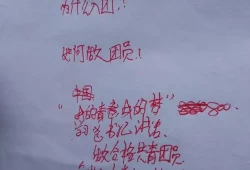 为什么入团？！
如何做团员！
中国
"我的青春我的梦
800
总书记讲话
做合格共青团员